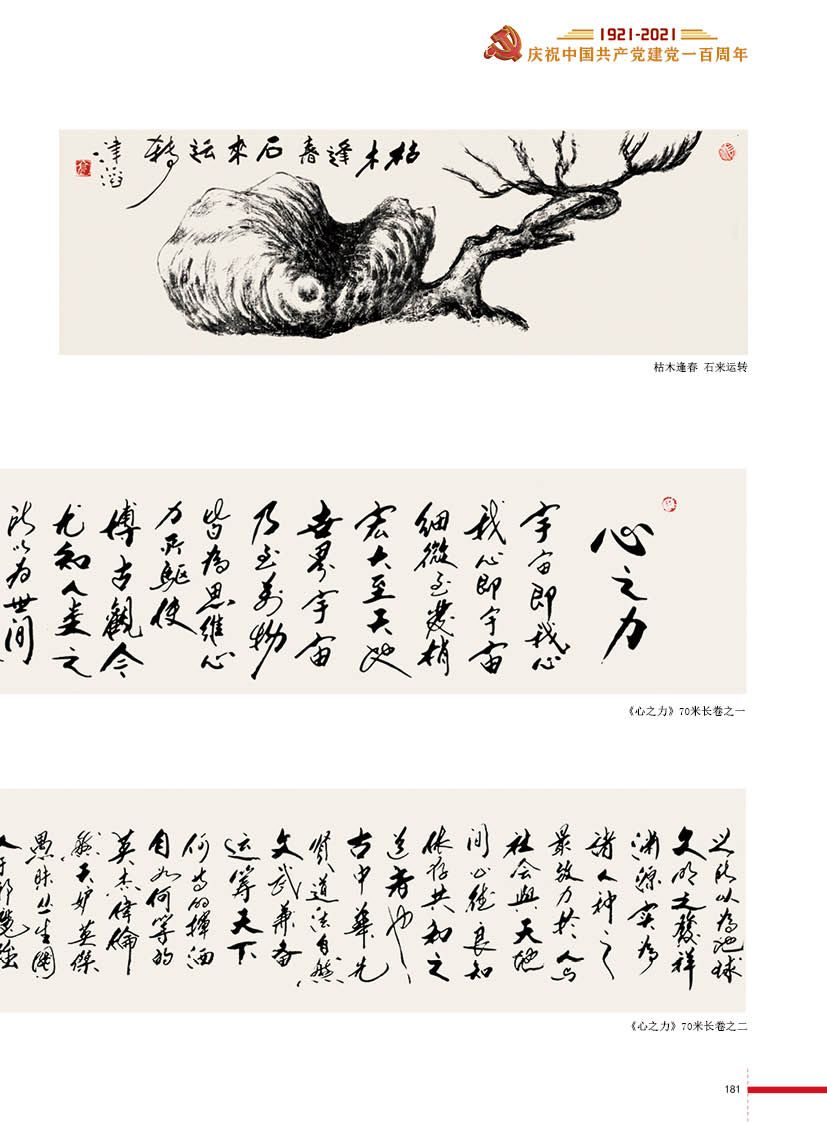 1921-2021
庆祝中国共产党建党一百周年
枯木逢春石來运轉
津滔
枯木逢春 石来运转
心之力
宇宙即我心
我心即宇宙
细微至發梢
宏大至天地
世界宇宙
乃至萬物
皆為思维心
力所驱使
博古觀今
尤知人类之
所以为世间
《心之力》70米长卷之一
之所以為地球
文明之發祥
渊源实為
诸人种之
最致力於人与
社会與天地
间心徳良知
体存共和之
道者也
古中華先
贤道法自然
文武兼备
运筹天下
何等的揮洒
自如何等的
英杰偉倫
然天妒英傑
愚昧丛生国
《心之力》70米长卷之二
181